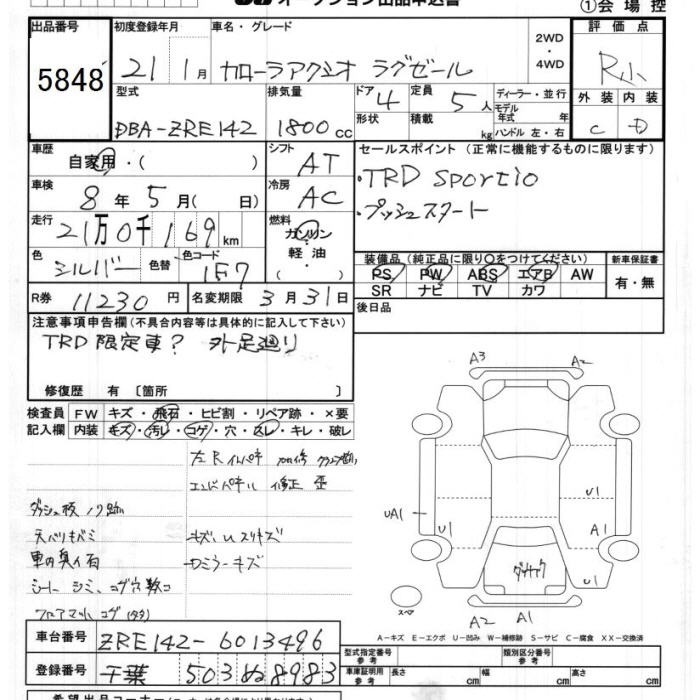 オークション出品申込書
①会場控
出品番号
5848
初度登録年月
21年 1月
車名・グレード
カローラアクシオ ラグゼール
2WD
・
4WD
評価点
R小
外装 内装
C D
型式
DBA-ZRE142
排気量
1800cc
ドア 4
形状
定員 5人
積載 kg
ディーラー・並行
モデル年式 年
ハンドル 左・右
車歴
自家用・( )
シフト
AT
車検
8年 5月( 日)
冷房
AC
走行
21万0千169km
燃料
ガソリン
・
軽油
( )
色
シルバー 色替
色コード
1F7
R券 11230円
名変期限 3月31日
セールスポイント (正常に機能するものに限ります)
・TRD Sportio
・プッシュスタート
装備品(純正品に限り○をつけてください)
PS PW ABS エアB AW
SR ナビ TV カワ
新車保証書
有・無
後日品
注意事項申告欄(不具合内容等は具体的に記入して下さい)
TRD限定車? 外足廻り
修復歴 有〔箇所 〕
検査員 FW キズ・飛石・ヒビ割・リペア跡・×要
記入欄 内装 キズ・汚レ・コゲ・穴・スレ・キレ・破レ
左Rインパネ
エンドパネル 修正 歪
ダッシュ板ノリ跡
天バリキバミ
キズ U スリキズ
ロミラーキズ
シート シミ、コゲ穴数コ
フロアマットコゲ
A3 A2
UA1
U1
U1
A1
U1
スペア
A2 A1
A-キズ E-エクボ U-凹み W-補修跡 S-サビ C-腐食 XX-交換済
車台番号 ZRE142-6013496
登録番号 千葉 503 ぬ 8983
型式指定番号
参考
類別区分番号
参考
車証明用
参考
長さ cm 幅 cm 高さ cm